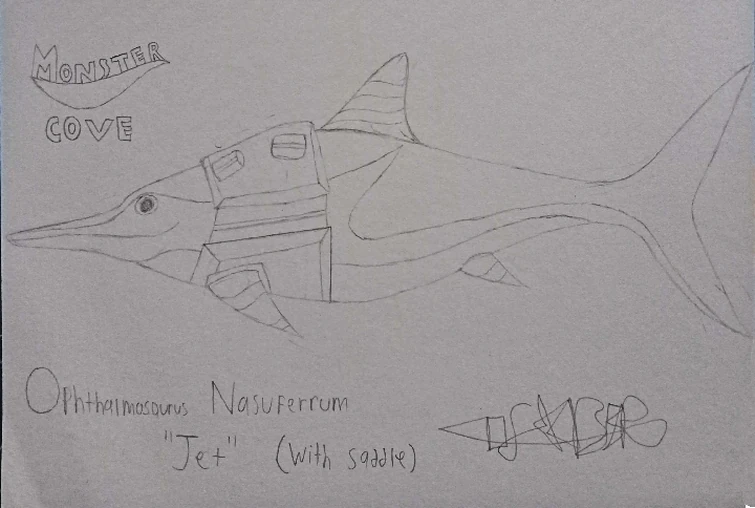 MONSTER
COVE
Ophthalmosaurus Nasuferrum
"Jet" (With saddle)